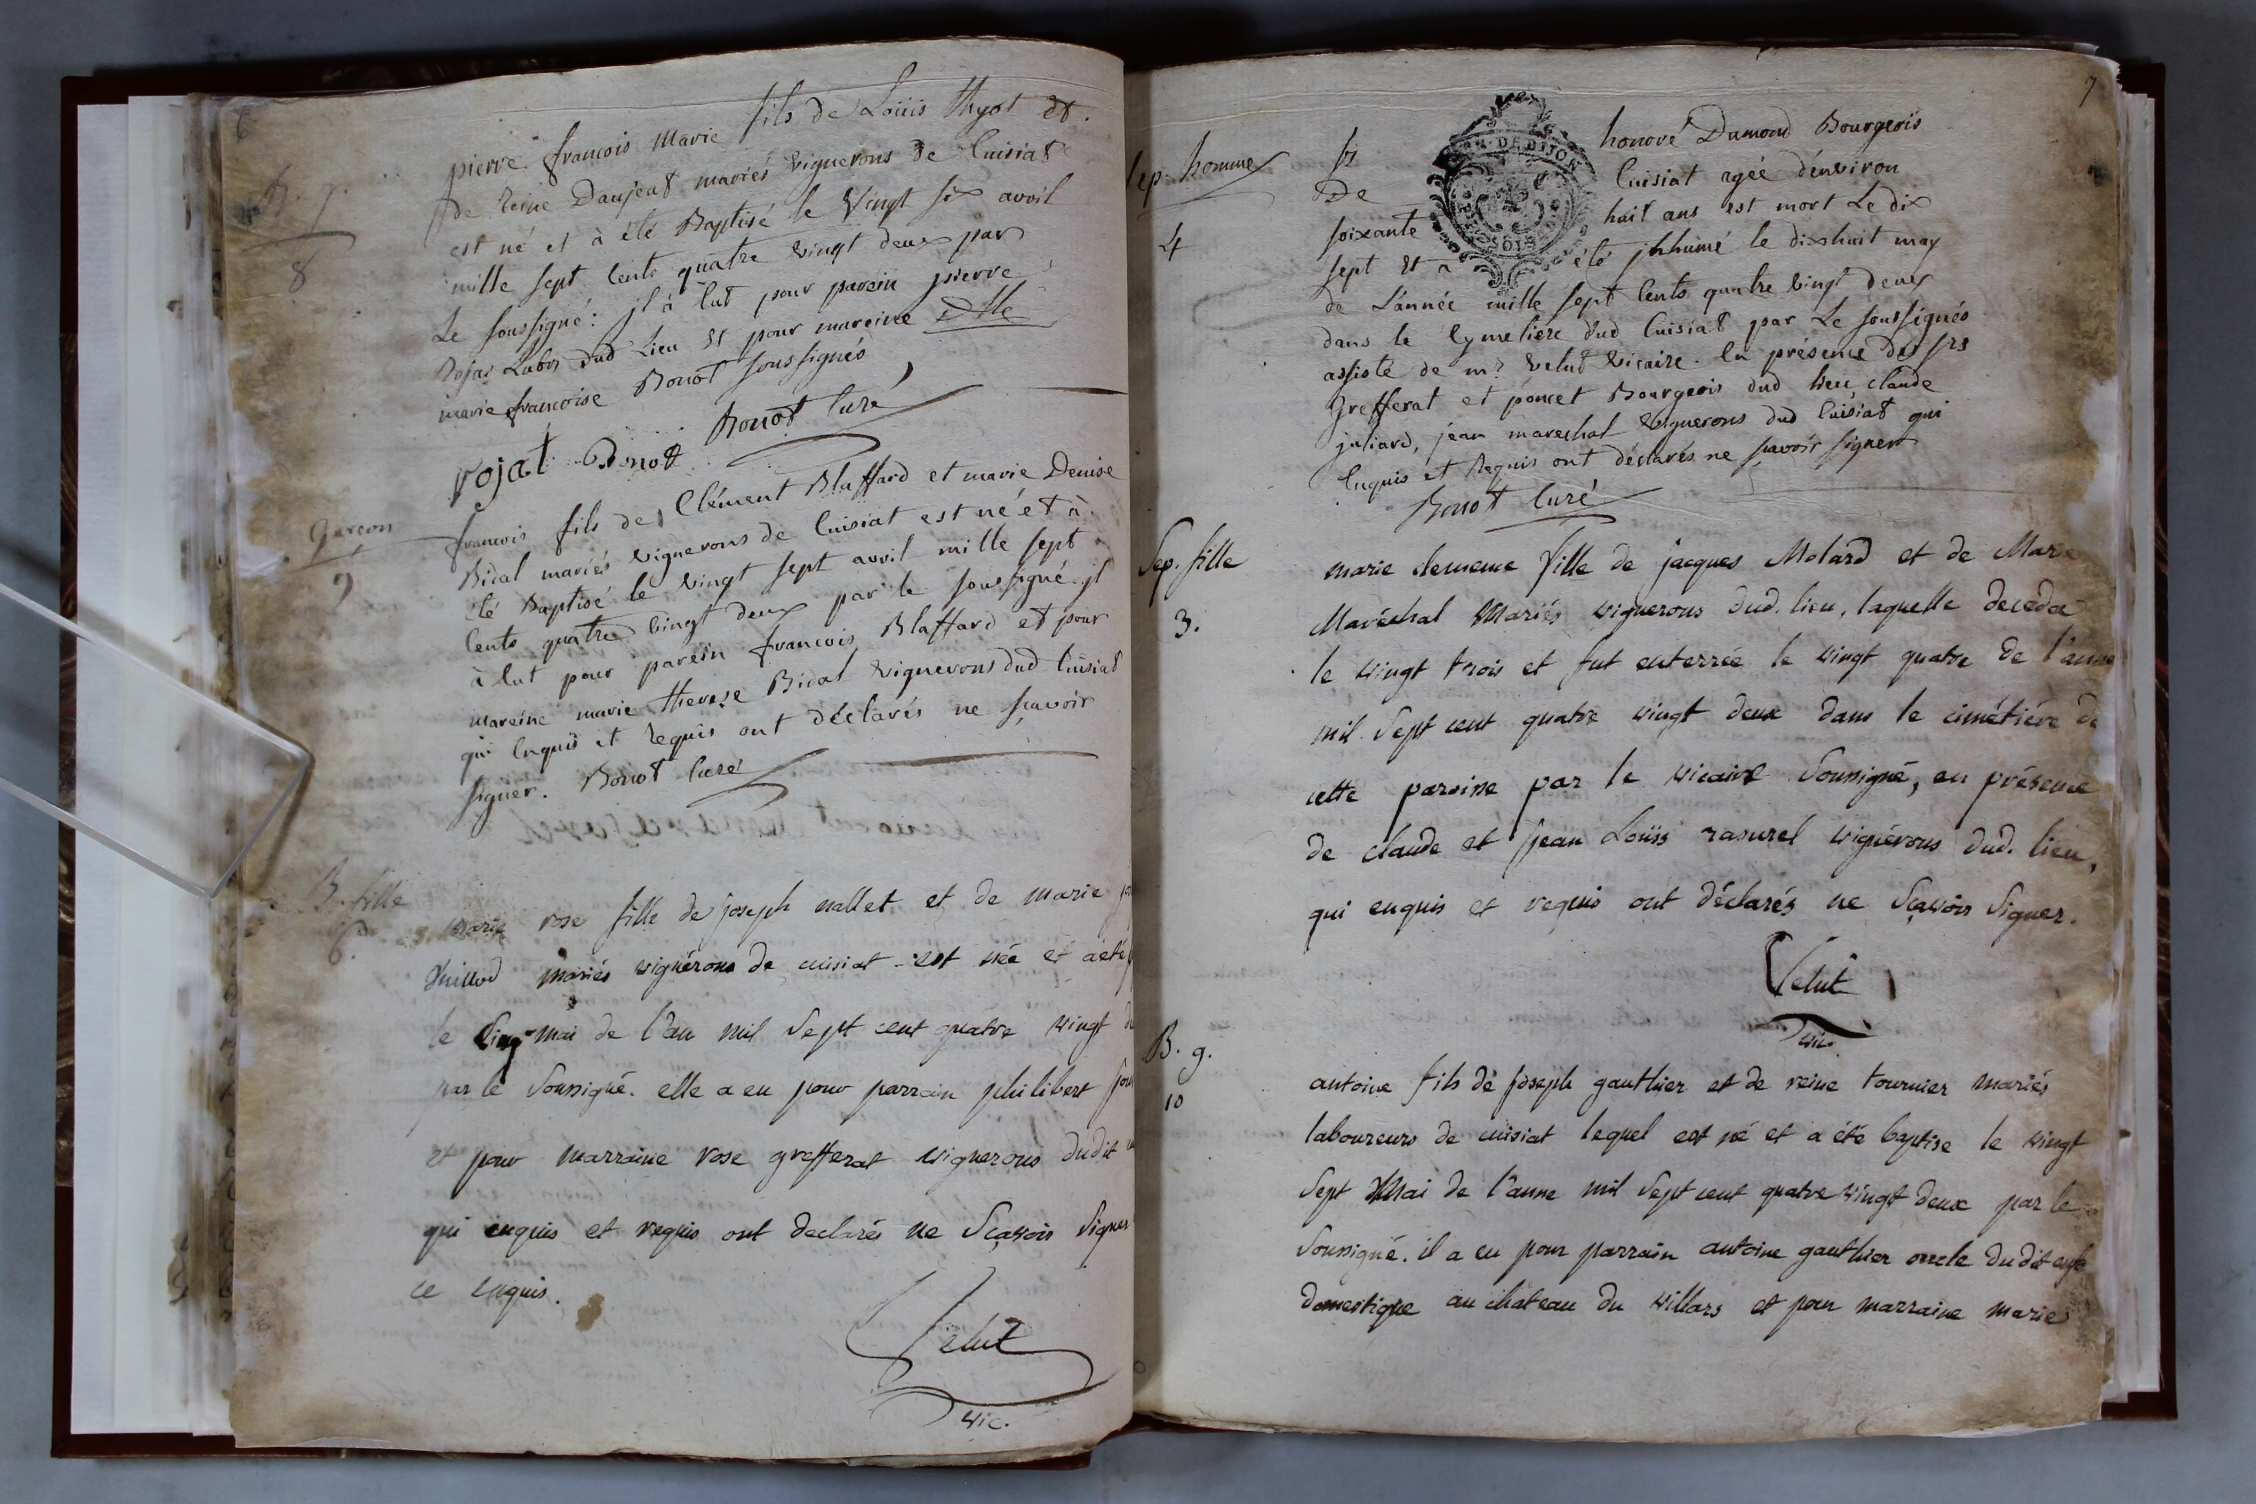 6
B. g.
8
pierre françois Marie fils de Loüis thyot et
de reine Danjeat mariés vignerons de Cuisiat
est né et à été Baptisé le vingt six avril
mille sept cents quatre vingt deux par
Le soussigné: jl à Eut pour parein pierre
Rojat Labor dud Lieu et pour mareine dlle
marie françoise Bonot soussignés
rojat Bonot Bonot Curé
Garçon
9
françois fils de Clément Blaffard et marie Denise
Bidal mariés vignerons de Cuisiat est né et à
été Baptisé le vingt sept avril mille sept
Cents quatre vingt deux par le soussigné jl
à Eut pour parein françois Blaffard et pour
mareine marie therese Bidal vignerons dud Cuisiat
qui Enquis et Requis ont déclarés ne sçavoir
signer. Bonot Curé
B. fille
6.
marie rose fille de joseph mallet et de marie
vuillod mariés vignérons de cuisiat est née et a été
le cinq mai de l'an mil sept cent quatre vingt
par le soussigné. elle a eu pour parrain philibert
et pour marraine rose grefferat vignerons dudit
qui enquis et requis ont declarés ne sçavoir signer
ce enquis.
Velut
vic.
7
Sep. homme
4
sr honoré Dumond Bourgeois
De Cuisiat agée d'environ
soixante huit ans est mort Le dix
sept et a été jnhumé le dixhuit may
de L'année mille sept Cents quatre vingt deux
dans le Cymetiere dud Cuisiat par Le soussignés
assisté de mr velut vicaire. En présence des srs
Grefferat et poncet Bourgeois dud lieu, claude
juliard, jean mareschal vignerons dud Cuisiat qui
Enquis et Requis ont déclarés ne sçavoir signer
Bonot Curé
Sep. fille
3.
marie clemence fille de jacques Molard et de Marie
Maréchal Mariés vignerons dud. lieu, laquelle deceda
le vingt trois et fut enterrée le vingt quatre de l'anne
mil sept cent quatre vingt deux dans le cimétiére de
cette paroisse par le vicaire soussigné, en présence
de claude et jean Loüis rasurel vignérons dud. lieu,
qui enquis et requis ont déclarés ne sçavoir signer.
Velut
vic.
B. g.
10
antoine fils de joseph gauthier et de reine tournier mariés
laboureurs de cuisiat lequel est né et a été baptise le vingt
sept Mai de l'anne mil sept cent quatre vingt deux par le
soussigné. il a eu pour parrain antoine gauthier oncle dudit
domestique au chateau du villars et pour marraine marie